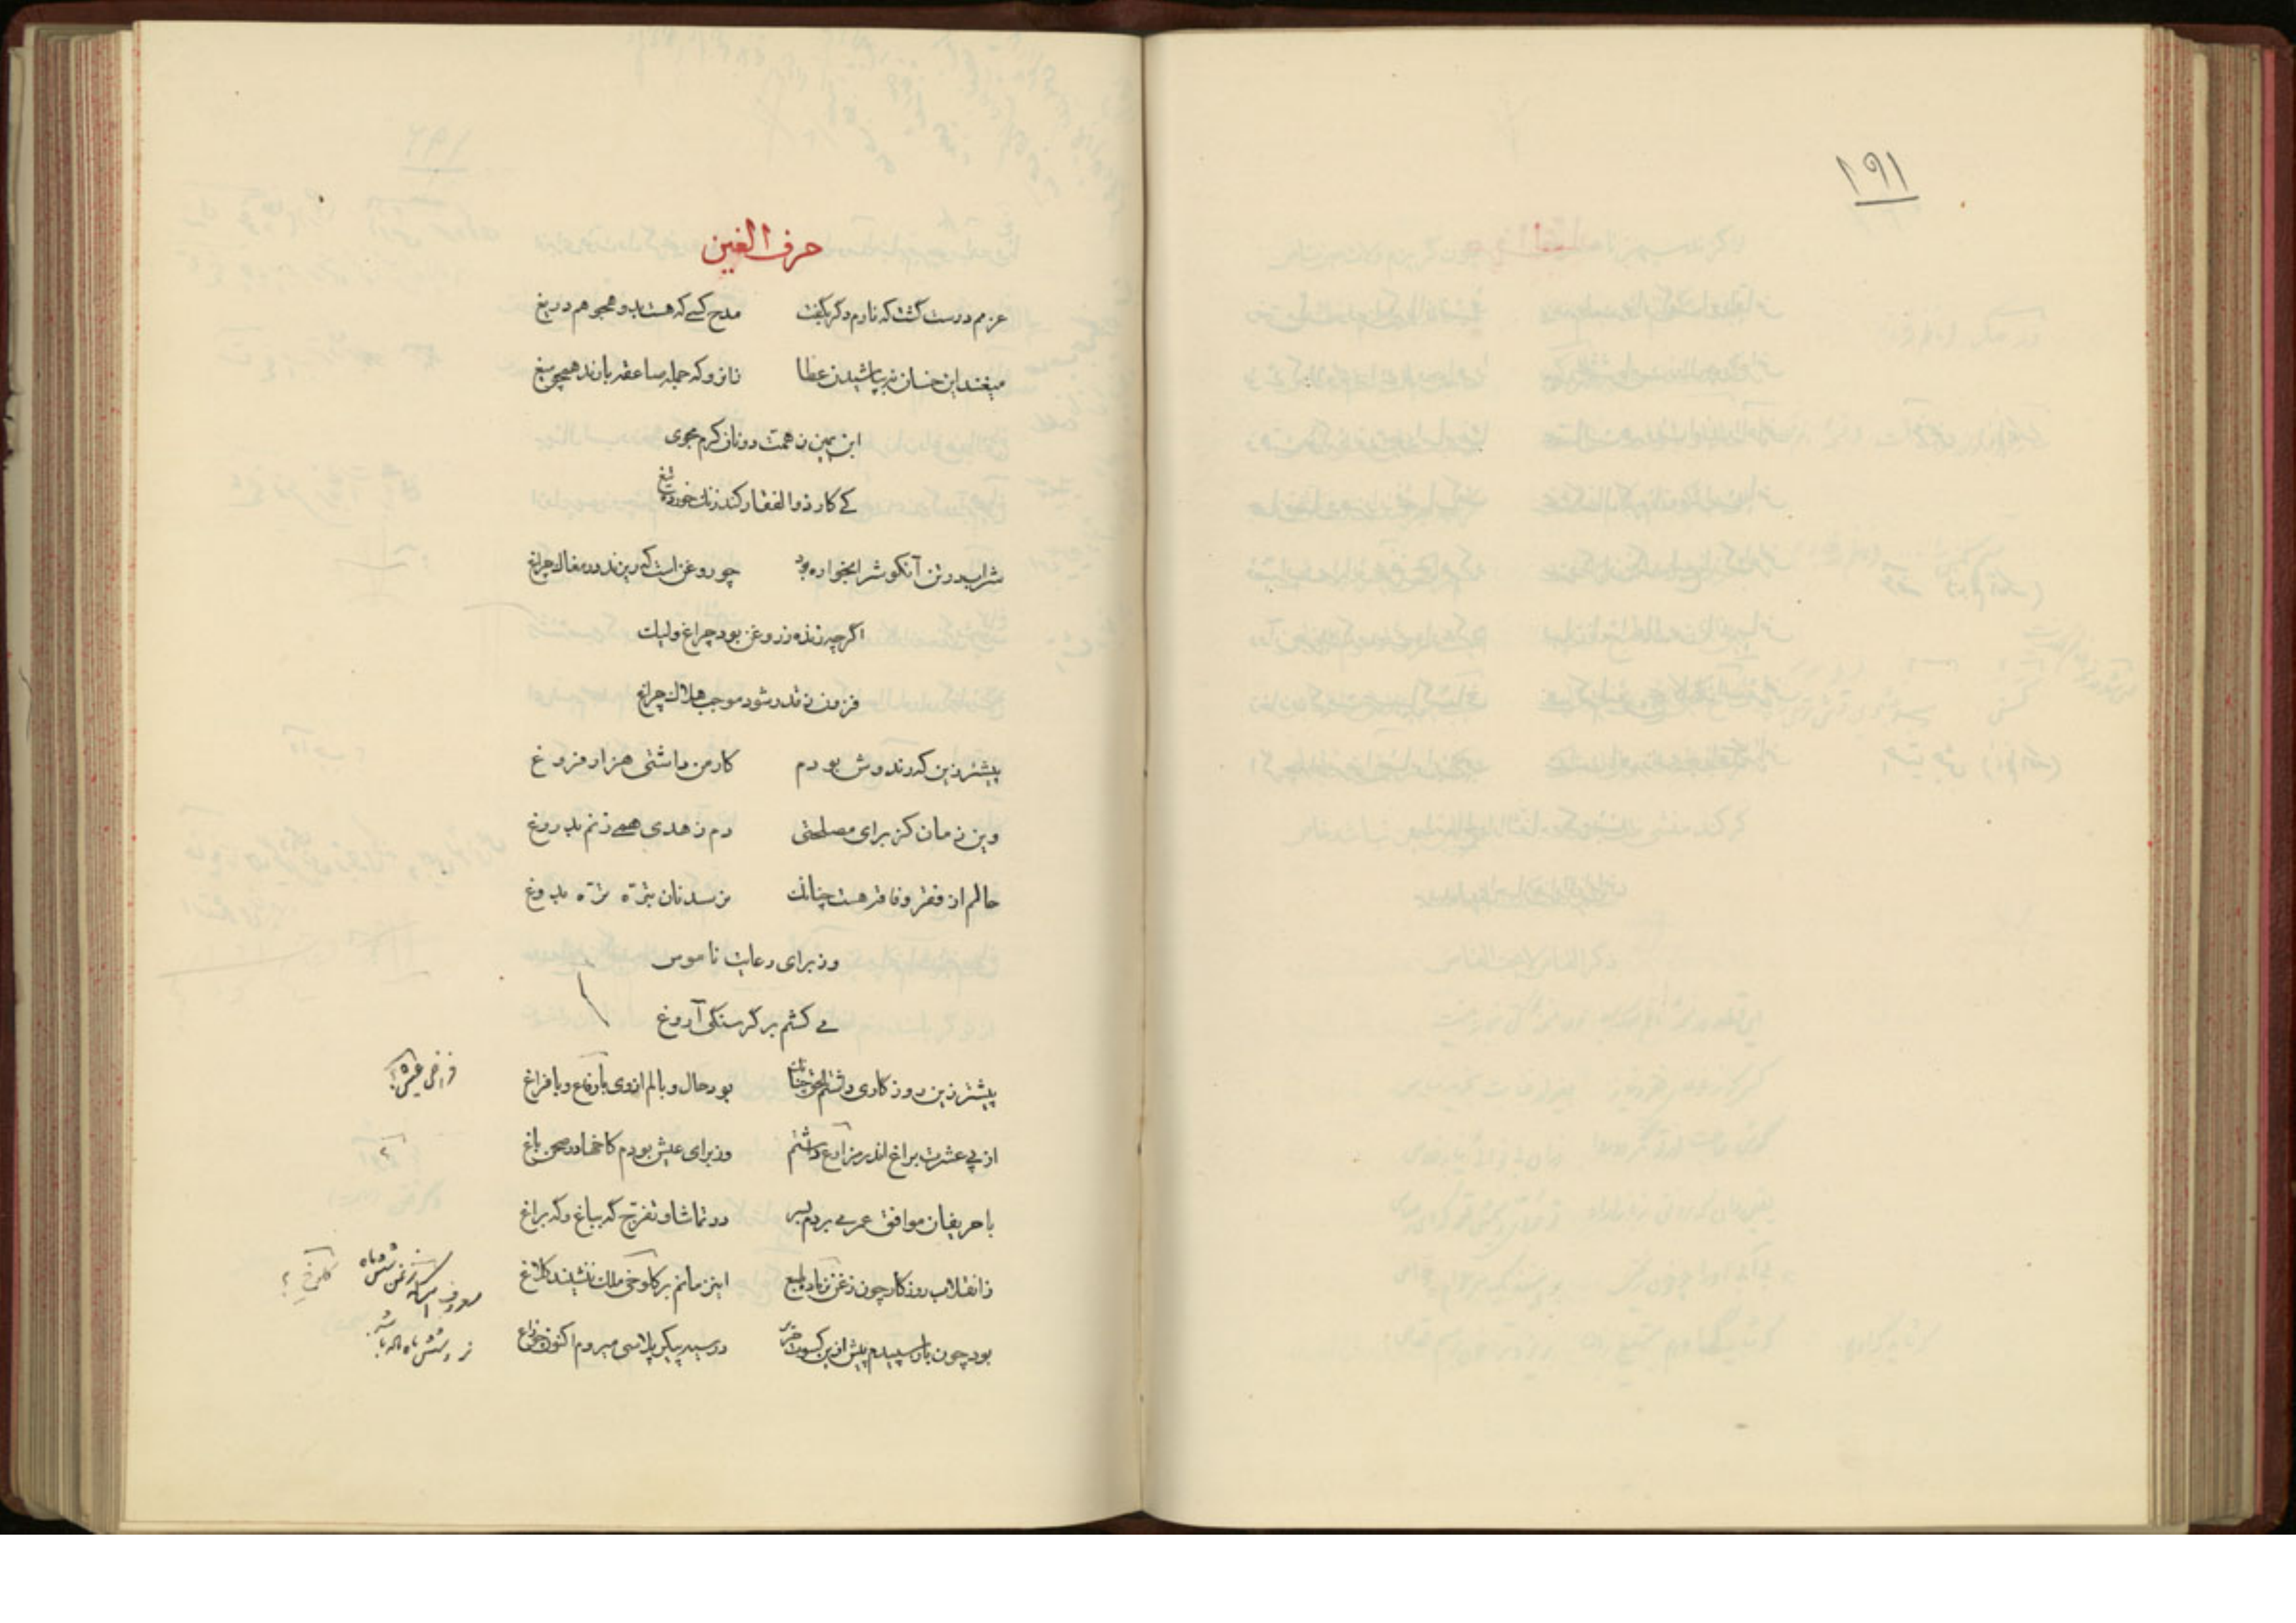 ۱۹۱
حرف الغین
عزمم درست گشت که نارم دگر بگفت مدح کسی که هست بدو هجو هم دریغ
میغند این خسان نه بپاشیدن عطا زانرو که جمله صاعقه بارند همچو میغ
ابن یمین ز همت دونان کرم مجوی
کی کار ذوالفقار کند زنک خورده تیغ
شراب در تن آنکو شرابخواره بود چو روغن است که ریزند در مغاک چراغ
اگرچه زنده ز روغن بود چراغ ولیک
فزون ز قدر شود موجب هلاک چراغ
پیشتر زین که رند وش بودم کار من داشتی هزار فروغ
وین زمان کز برای مصلحتی دم ز هدی همی زنم بدروغ
حالم از فقر و فاقه هست چنانک نرسد نان بتره تره بدوغ
وز برای رعایت ناموس
می کشم بر گرسنگی آروغ
پیشتر زین روزکاری داشتم الحق چنانک بود حال و بالم از وی با رفاع و با فراغ
از پی عشرت براغ اندر مزارع داشتم وز برای عیش بودم کاخها در صحن باغ
با حریفان موافق عمر می بردم بسر در تماشا و تفرج که بباغ و که براغ
ز انقلاب روزکار چون زغن نر ماده طبع این زمانم بر کلوخی ملک ننشیند کلاغ
بود چون باز سپیدم پیش ازین کسوت حریر در سیه پیکر پلاسی میروم اکنون چو زاغ
فراخی عیش